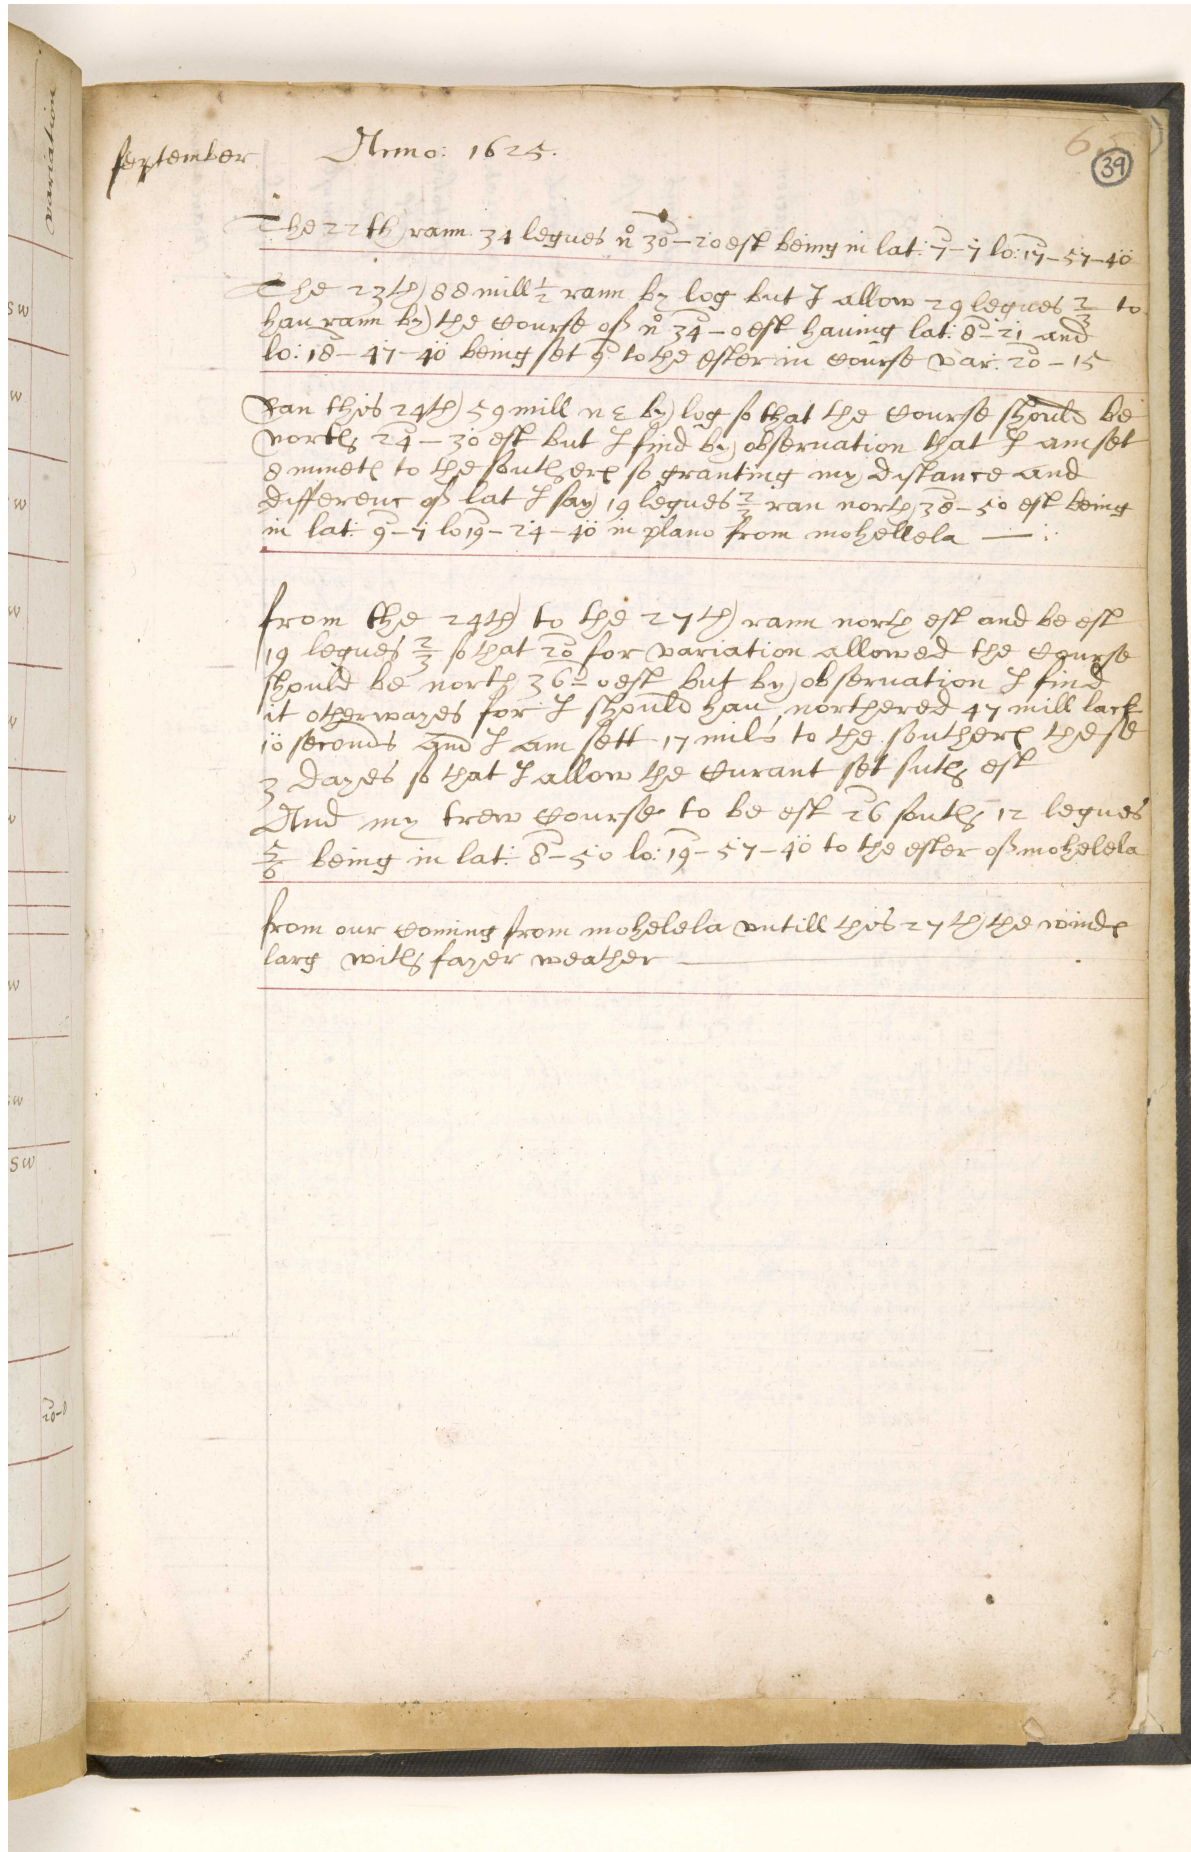 variation
September Anno: 1625.
6
39
The 22th rann 34 legues n° 30–20 est being in lat: 7–7 lo: 17–57–40
The 23th 88 mill 1/2 rann by log but I allow 29 legues 2/3 to
hau rann by the course off n° 34–0 est hauing lat: 8–21 and
lo: 18–47–40 being set 9 to the ester in course var: 20–15
Ran this 24th 59 mill n E by log so that the Course should be
north 24–30 est but I find by obseruation that I am set
8 minets to the southers so granting my distance and
differenc off lat I say 19 legues 2/3 ran north 38–50 est being
in lat: 9–7 lo 19–24–40 in plano from mohellela — :
from the 24th to the 27th rann north est and be est
19 legues 2/3 so that 20 for variation allowed the Course
should be north 36–0 est but by obseruation I find
it otherwayes for I should hau northered 47 mill lack
10 seconds and I am sett 17 mils to the southers these
3 dayes so that I allow the Curant set suth est
And my trew Course to be est 26 south 12 legues
5/6 being in lat: 8–50 lo: 19–57–40 to the ester off mohelela
from our Coming from mohelela vntill this 27th the winds
larg with fayer weather
SW
W
W
W
W
SW
20–0